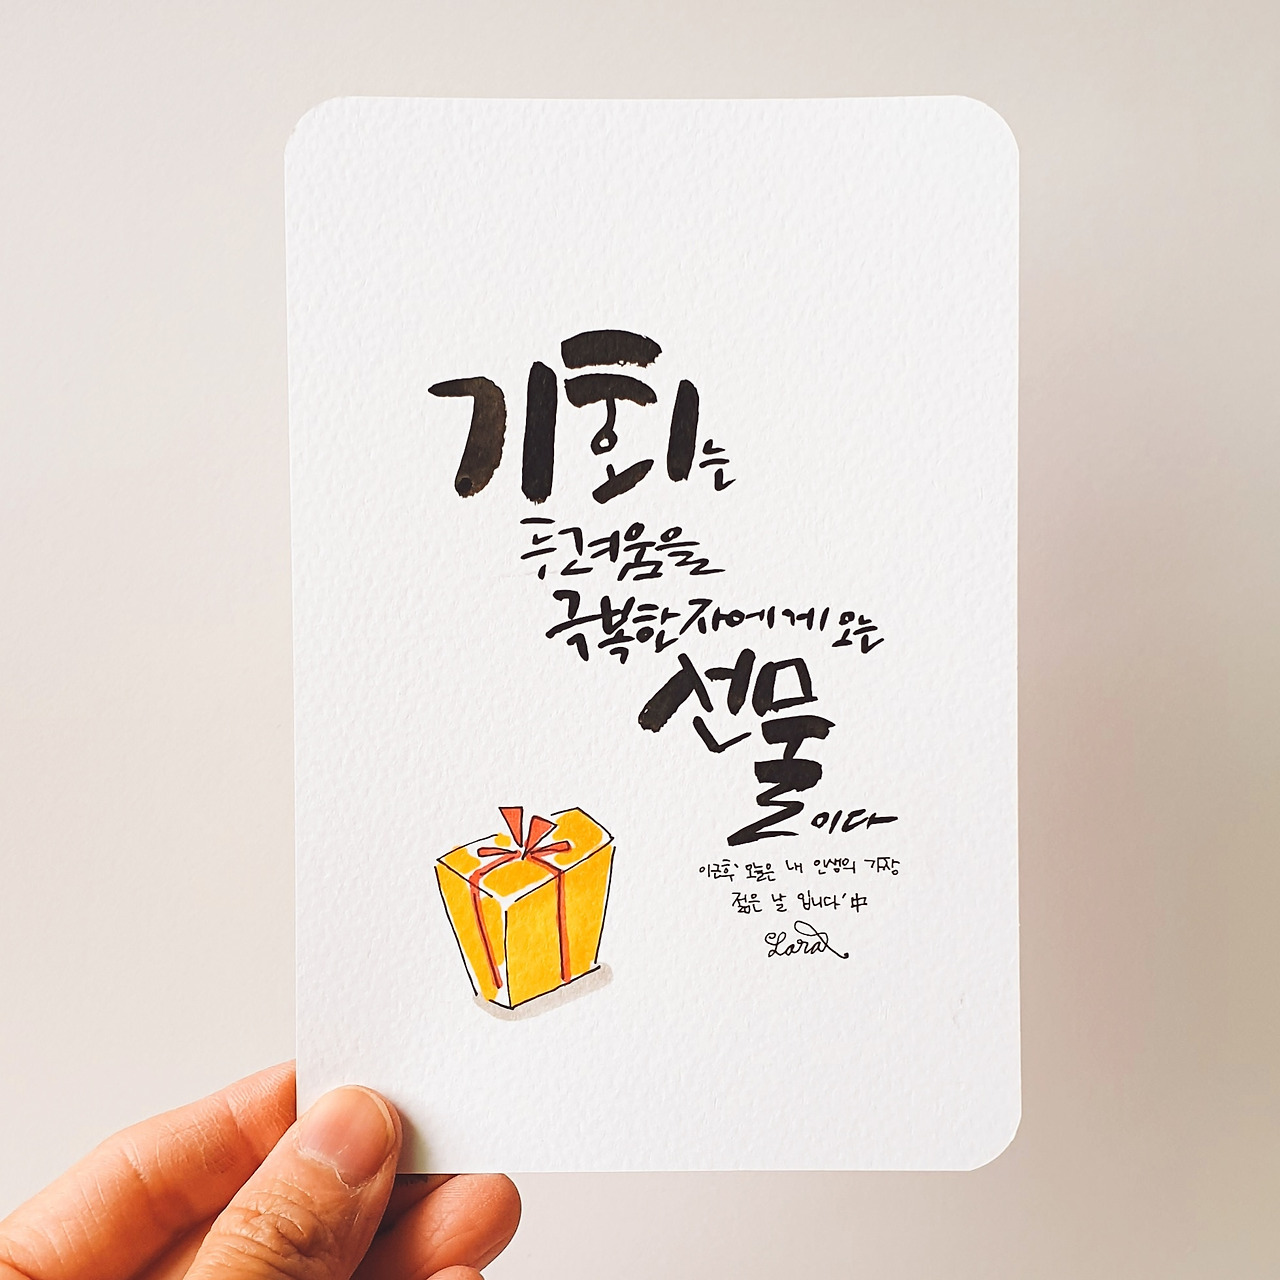 기회는
두려움을
극복한 자에게 오는
선물
이다
이근후 '오늘은 내 인생의 가장
젊은 날 입니다' 中
Lara